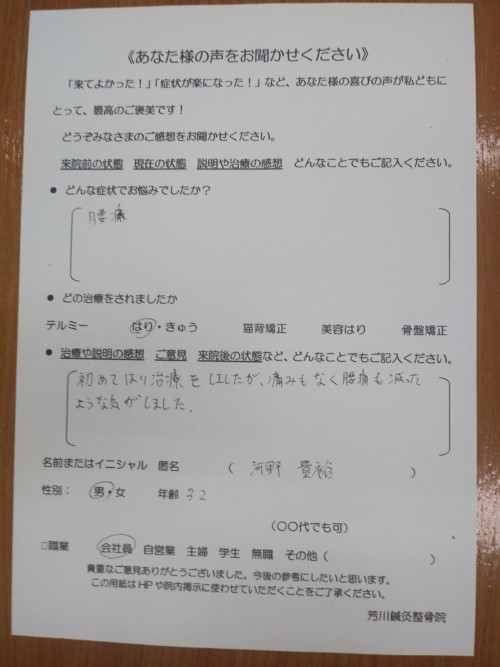 《あなた様の声をお聞かせください》
「来てよかった！」「症状が楽になった！」など、あなた様の喜びの声が私どもに
とって、最高のご褒美です！
どうぞみなさまのご感想をお聞かせください。
来院前の状態 現在の状態 説明や治療の感想 どんなことでもご記入ください。
● どんな症状でお悩みでしたか？
腰痛
● どの治療をされましたか
テルミー はり・きゅう 猫背矯正 美容はり 骨盤矯正
● 治療や説明の感想 ご意見 来院後の状態など、どんなことでもご記入ください。
初めてはり治療をしましたが、痛みもなく腰痛も減った
ような気がしました.
名前またはイニシャル 匿名 （ 河野 貴裕 ）
性別： 男・女 年齢 32
（〇〇代でも可）
□職業 会社員 自営業 主婦 学生 無職 その他（ ）
貴重なご意見ありがとうございました。今後の参考にしたいと思います。
この用紙はHPや院内掲示に使わせていただくことをご了承ください。
芳川鍼灸整骨院